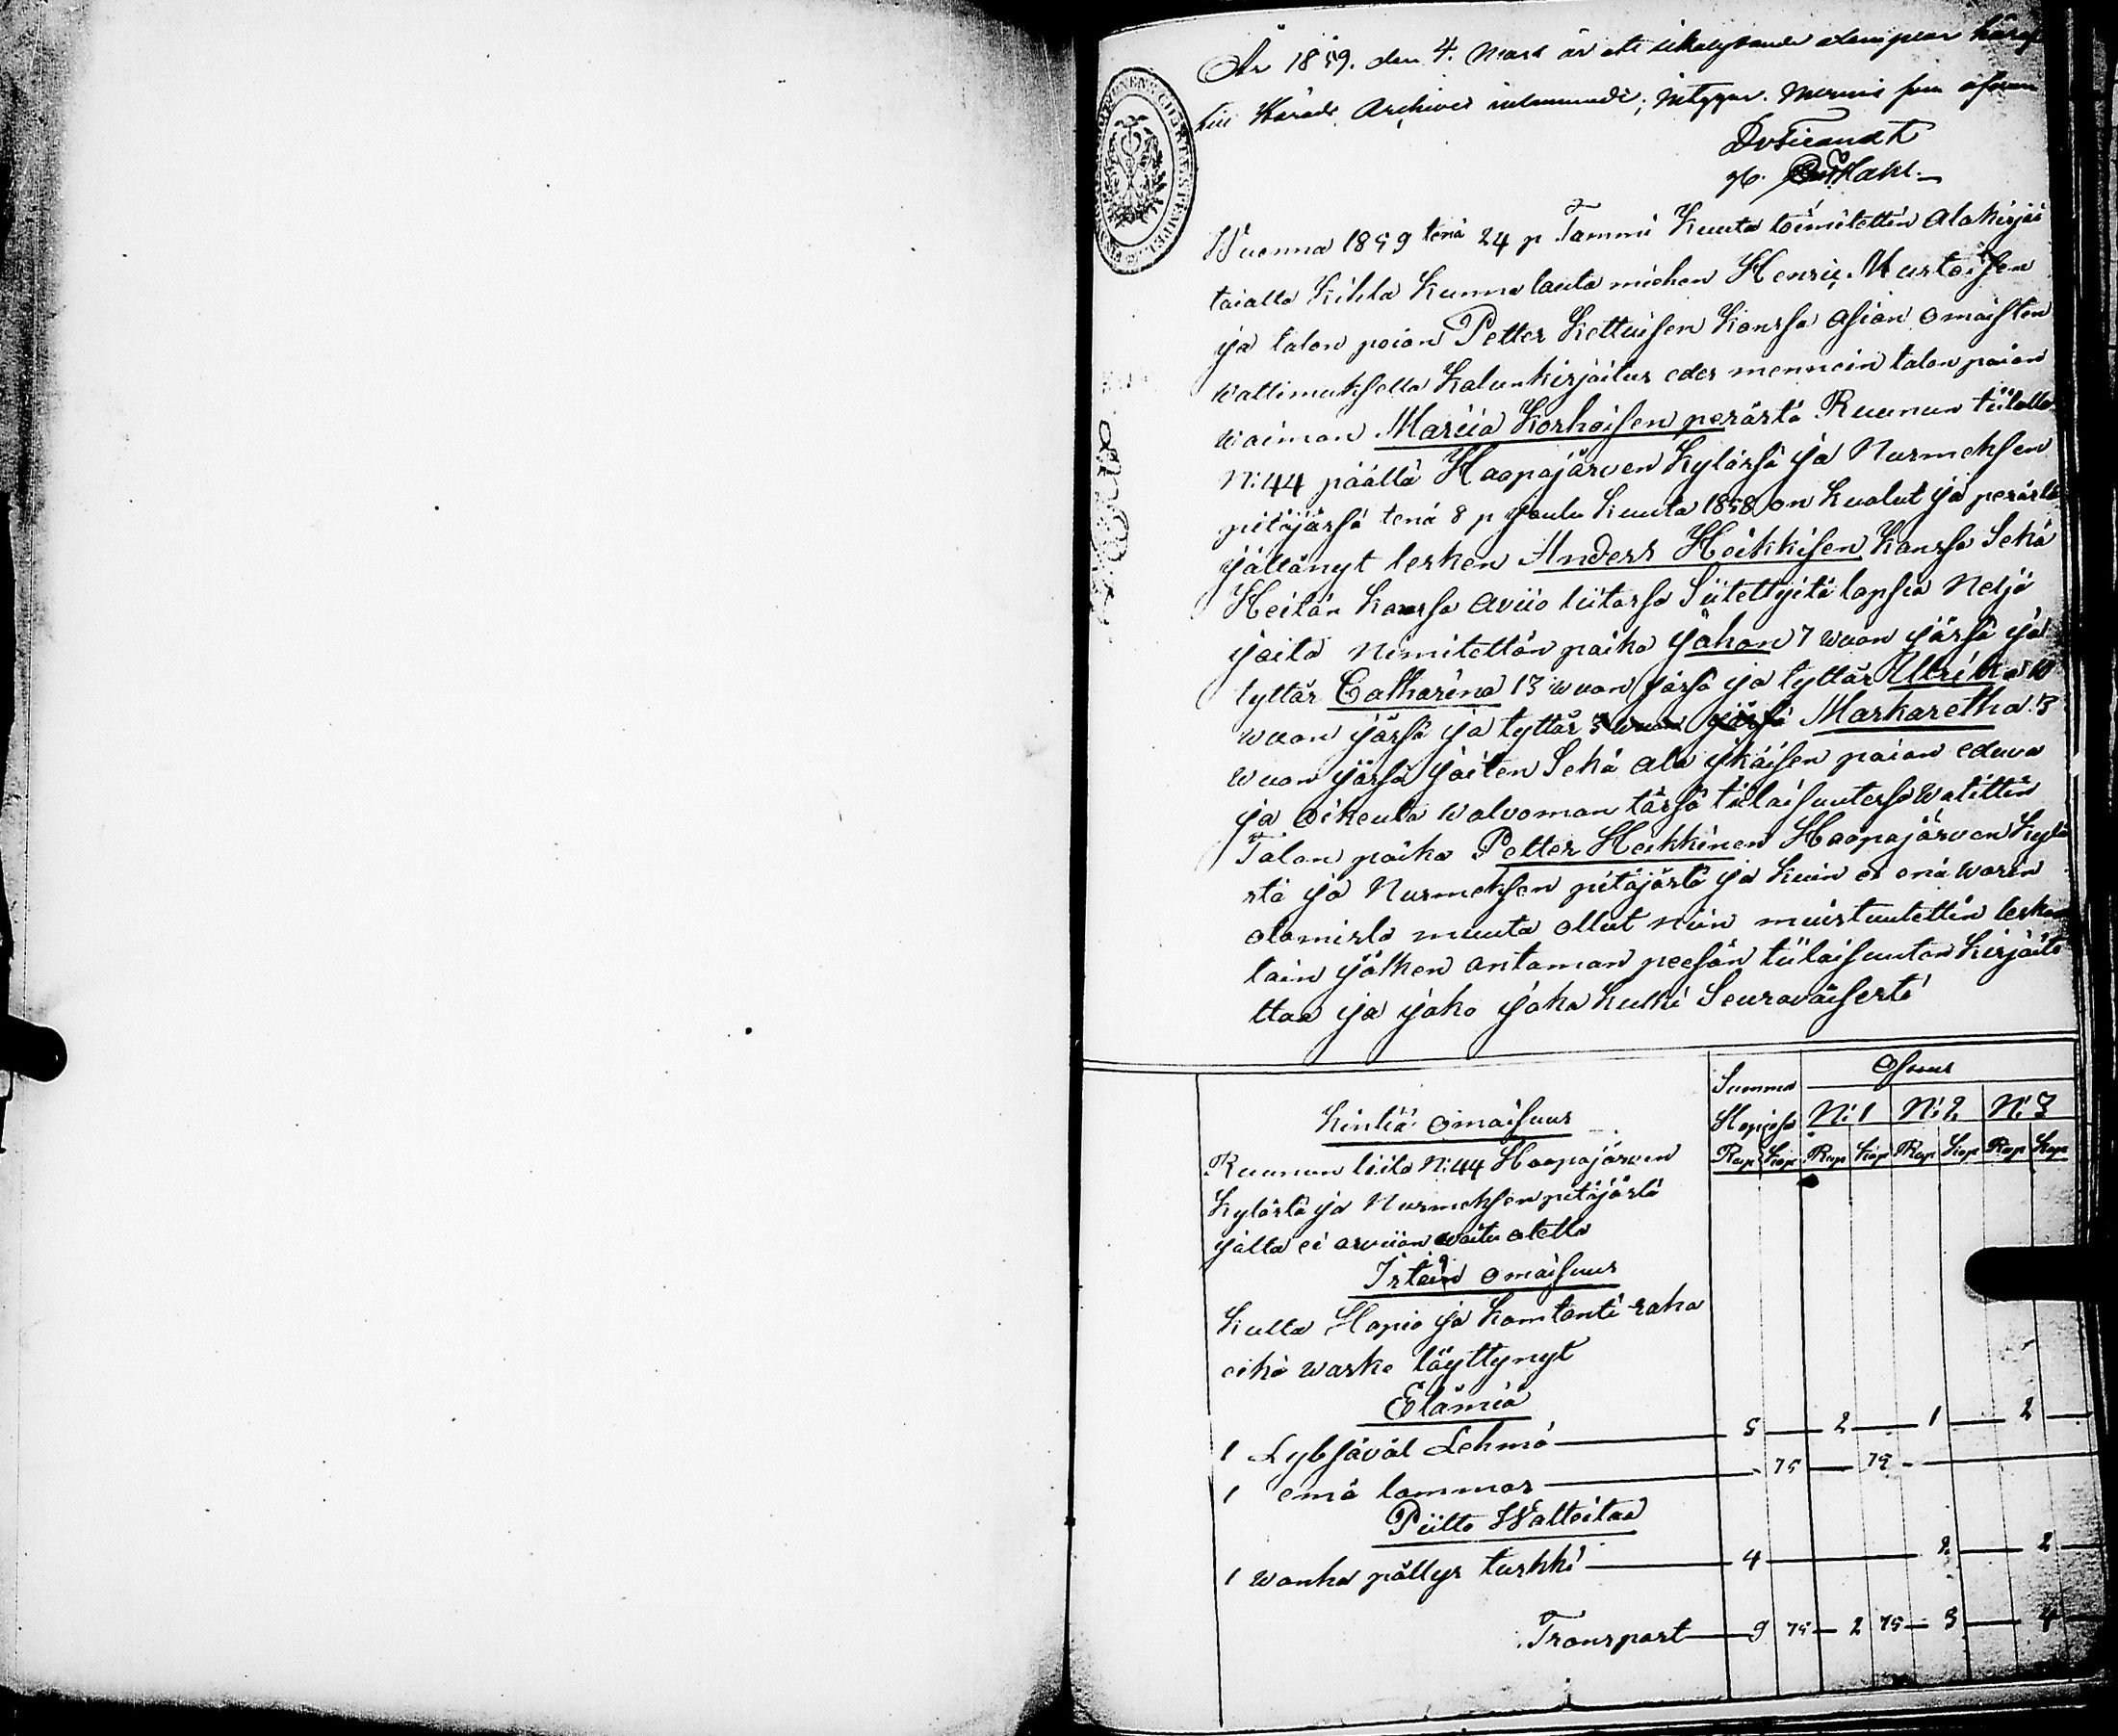 År 1859. den 4. Mars är ett likalydande exemplar häraf
till Härads Archivet inlemnadt; intygar. Nurmis som ofvan
Wuonna 1859 tenä 24 p Tammi Kuuta toimitettin Alakirjoi
taialta Kihla Kunna lauta miehen Henric Mustoisen
ja talon poian Petter Kettuisen Kanssa Asian omaisten
Wattimuksella Kalunkirjoitus edes mennein talon poian
waiman Mariia Korhoisen perästä Ruunun tiilalla
N:44 päällä Haapajärven Kylässä ja Nurmeksen
pitäjässä tenä 8 p Joulu Kuuta 1858 on Kuolut ja perästä
jällänyt lesken Anders Heikkisen Kanssa Sekä
Heitän Kanssa Aviio liitossa Siitettyitä lapsia Neljä
joita Nimitettän poika Johan 7 wuon jässä ja
tyttär Catharina 13 wuon jässä ja tyttär Ulrika 10
wuon jässä ja tyttär 3 wuon jässä Markaretha 3
wuon jässä joiten Sekä ala ykäisen poian eduva
ja Oikeuta Walvoman tässä tilaisuutessa Walittin
Talon poika Petter Heikkinen Haapajärven Kylä
stä ja Nurmeksen pitäjästä ja Kuin ei enä warin
olamista muuta ollut Niin muistuutettin lesken
lain jälken antaman peesän tiilaisuuten Kirjoite
ttaa ja jako joka Kulki Seuravaisesti
Kintiä Omaisuus
Summa Osuus
Hopiossa N:1 N:2 N:3
Rup Kop Rup Kop Rup Kop Rup Kop
Ruunun tiila N:44 Haapajärven
Kylästä ja Nurmeksen pitäjästä
jälla ei arviion woitu otella
Irtain omaisuus
Kulta Hopia ja Kontanti raha
eikä waske löyttynyt
Elämiä
1 Lybsävät Lehmä 5 2 1 2
1 emä lammas 75 75
Piilto Walteitaa
1 wanha pällys turkki 4 2 2
Transport 9 75 2 75 3 4